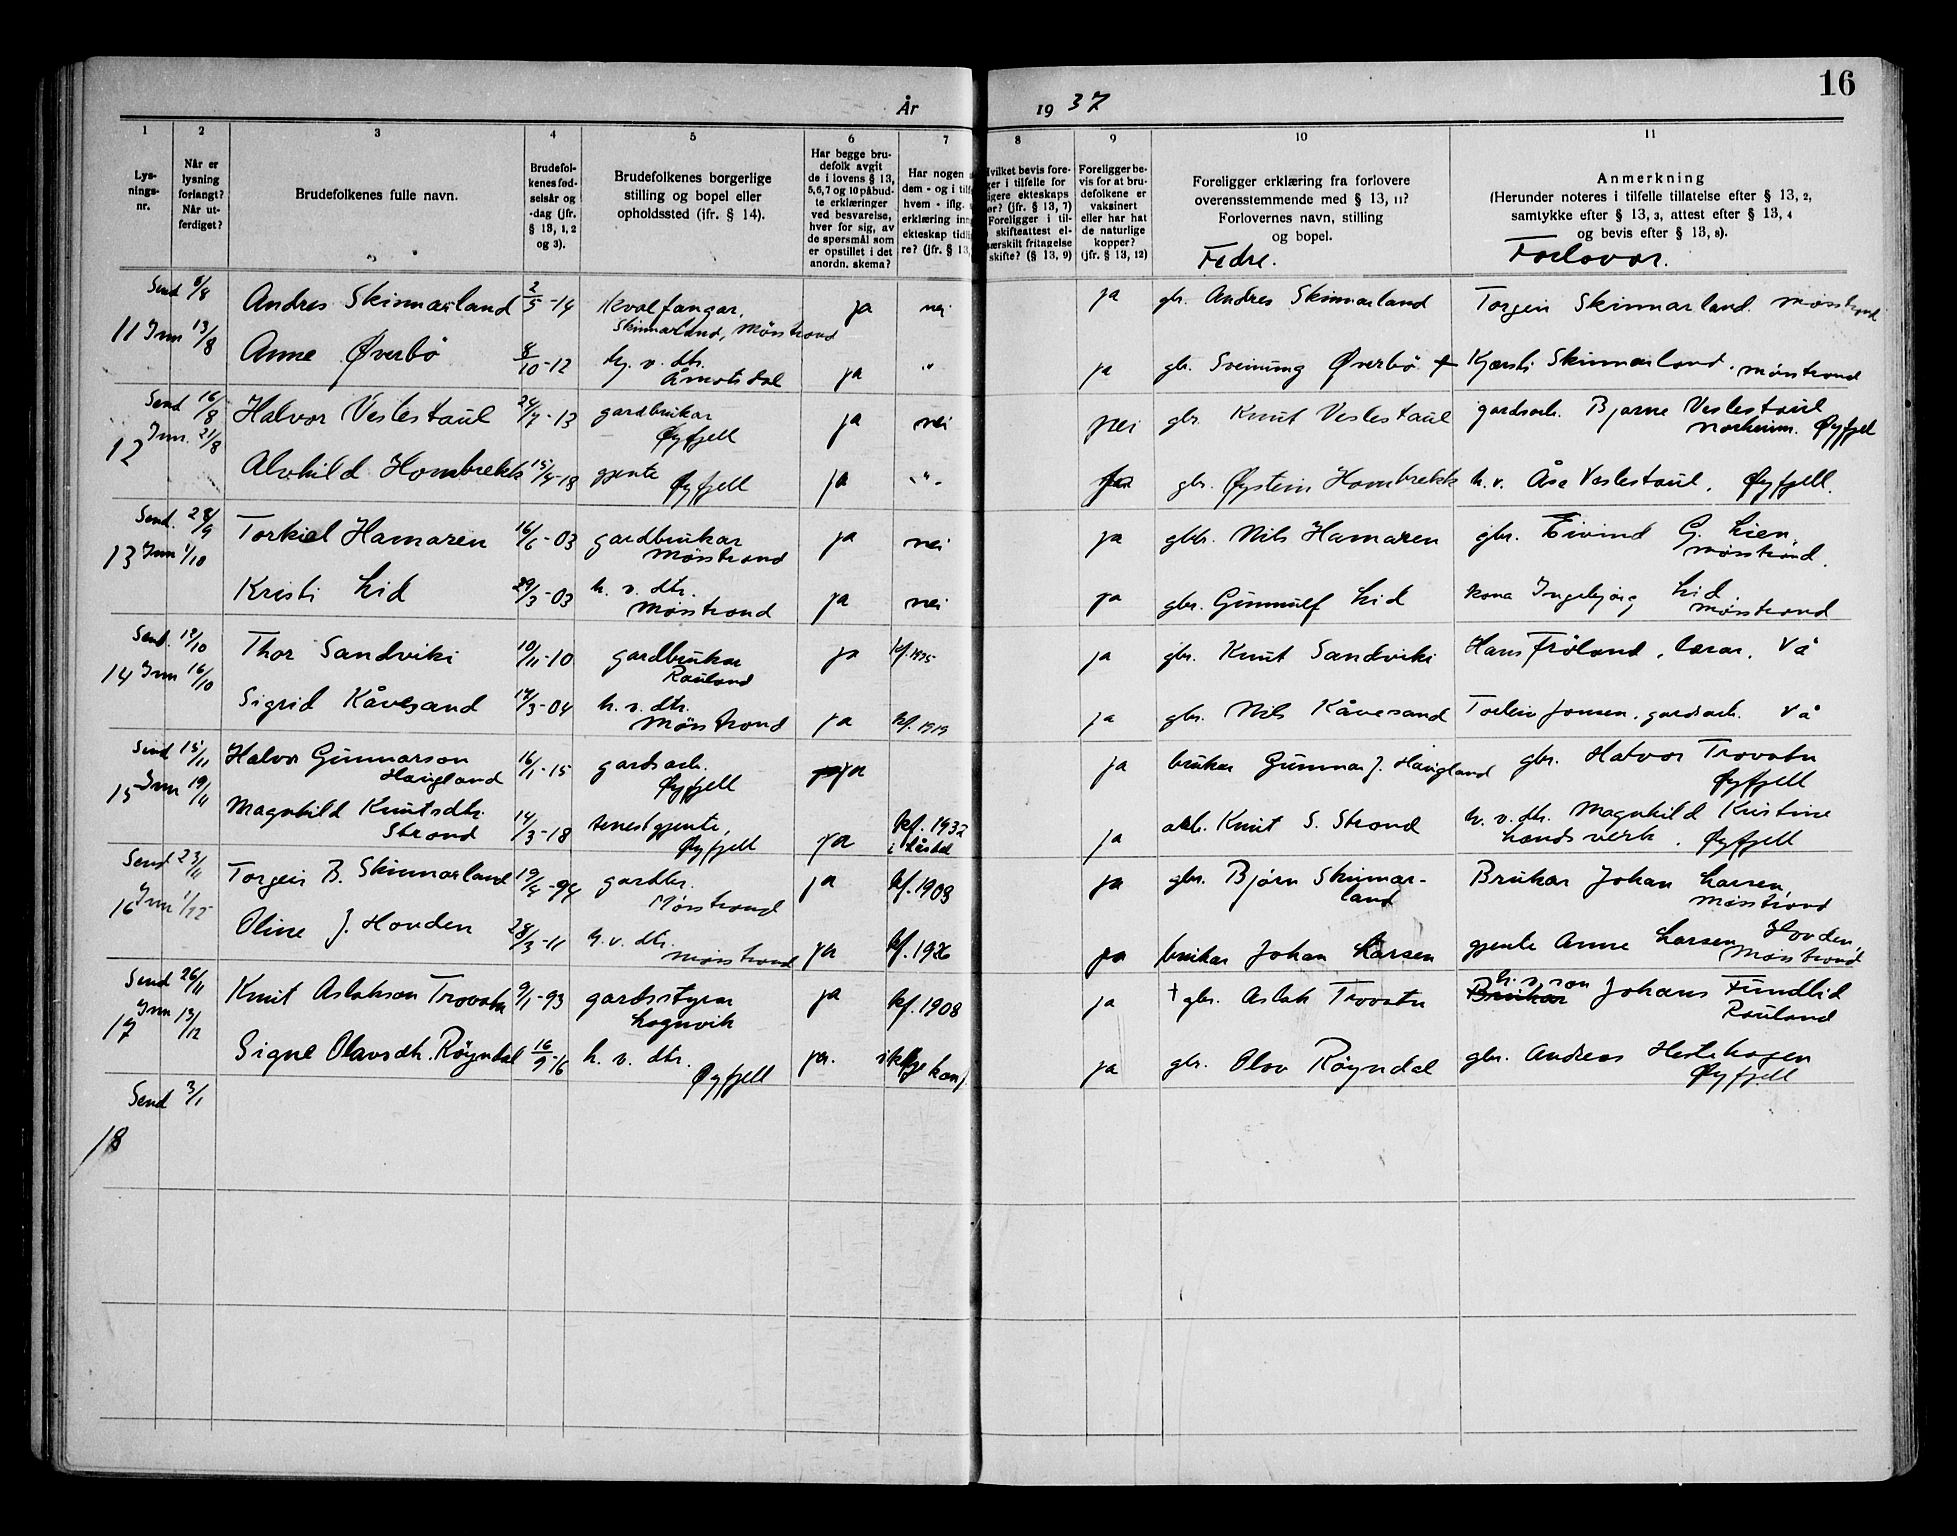 16
År 19 37
1 2 3 4 5 6 7 8 9 10 11
Lys-
nings-
nr.
Når er
lysning
forlangt?
Når ut-
ferdiget?
Brudefolkenes fulle navn.
Brudefol-
kenes fød-
selsår og
-dag (jfr.
§ 13, 1, 2
og 3).
Brudefolkenes borgerlige
stilling og bopel eller
opholdssted (jfr. § 14).
Har begge bru-
defolk avgit
de i lovens § 13,
5,6,7 og 10 påbud-
te erklæringer
ved besvarelse,
hver for sig, av
de spørsmål som
er opstillet i det
anordn. skema?
Har nogen
dem - og i tilf
hvem - iflg.
erklæring inn
ekteskap tidli
re? (jfr. § 13,
vilket bevis fore-
ger i tilfelle for
igere ekteskaps
ør? (jfr. § 13, 7)
Foreligger i til-
skifteattest el-
særskilt fritagelse
skifte? (§ 13, 9)
Foreligger be-
vis for at bru-
defolkene er
vaksinert
eller har hat
de naturlige
kopper?
(jfr. § 13, 12)
Foreligger erklæring fra forlovere
overensstemmende med § 13, 11?
Forlovernes navn, stilling
og bopel.
Fedre.
Anmerkning
(Herunder noteres i tilfelle tillatelse efter § 13, 2,
samtykke efter § 13, 3, attest efter § 13, 4
og bevis efter § 13, 8).
Forlovar.
11 Send 6/8 Andres Skinnarland 2/5-14 Kvalfangar, ja nei ja gbr. Andres Skinnarland Torgein Skinnarland. Møsstrond
Inn 13/8 Skinnarland, Møsstrond
Anne Øverbö 8/10-12 hg. v. dtr. ja " ja gbr. Sveinung Øverbö + Kjersti Skinnarland. Møsstrond
Åmotsdal
12 Send 16/8 Halvor Veslestaul 24/7-13 gardbrukar ja nei nei gbr. Knut Veslestaul gardsarb. Bjarne Veslestaul
Inn. 21/8 Øyfjell Norheim. Øyfjell
Alvhild Hombrekk 15/4-18 gjente ja -"- gbr. Øystein Hombrekk h.v. Åse Veslestaul, Øyfjell.
Øyfjell
13 Send. 28/9 Torkiel Hamaren 16/6-03 gardbrukar ja nei ja gbr. Nils Hamaren gbr. Eivind G. Lien,
Inn 1/10 Møsstrond Møsstrond.
Kristi Lid 29/3-03 h. v. dtr. ja nei ja gbr. Gunnulf Lid kona Ingebjørg Lid.
Møsstrond Møsstrond
14 Send. 12/10 Thor Sandviki 10/11-10 gardbrukar ja kf. 1935 ja gbr. Knut Sandviki Hans Fröland, lærar, Vå
Inn 16/10 Rauland
Sigrid Kåvesand 17/3-04 h. v. dtr. ja kf. 1919 ja gbr. Nils Kåvesand Torleiv Jonsen, gardsarb. Vå
Møsstrond
15 Send 15/11 Halvor Gunnarson 16/1-15 gardsarb. ja ja brukar Gunnar J. Haugland gbr. Halvor Trovatn
Inn 19/11 Haugland Øyfjell Øyfjell
Magnhild Knutsdtr. 14/3-18 tenestgjente, ja kf. 1932 ja arb. Knut S. Strond h. v. dtr. Magnhild Kristine
Strond Øyfjell Landsverk. Øyfjell
16 Send 23/11 Torgein B. Skinnarland 19/4-94 gardbr. ja kf. 1908 ja gbr. Bjørn Skinnar- Brukar Johan Larsen,
Inn 1/12 Møsstrond land Møsstrond
Oline J. Hovden 28/3-11 h. v. dtr. ja kf. 1926 ja brukar Johan Larsen gjente Anne Larsen Hovden,
Møsstrond Møsstrond
17 Send 26/11 Knut Aslakson Trovatn 9/1-93 gardsstyrar ja kf. 1908 ja + gbr. Aslak Trovatn Brukar h. v. son Johans Fundlid
Inn 13/12 Lognvik Rauland
Signe Olavsdtr. Røyndal 16/9-16 h. v. dtr. ja. ikkje konf ja gbr. Olav Røyndal gbr. Andreas Hestehagen
Øyfjell Øyfjell
18 Send 3/1